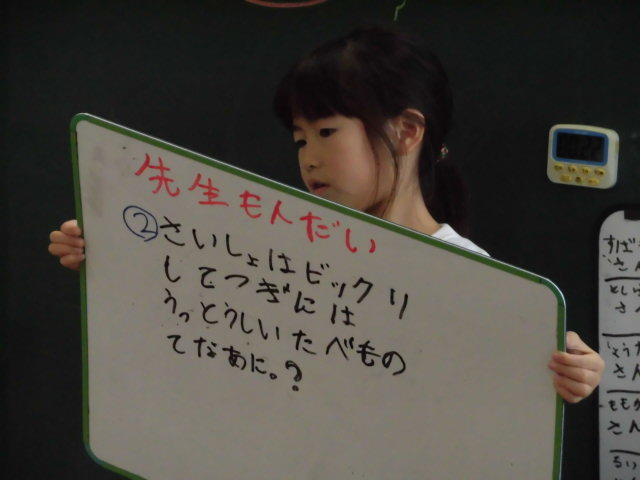 先生もんだい
②さいしょはビックリ
してつぎには
うっとうしいたべもの
てなあに。?
すば
さん
さ
さん
ももか
さん
るい